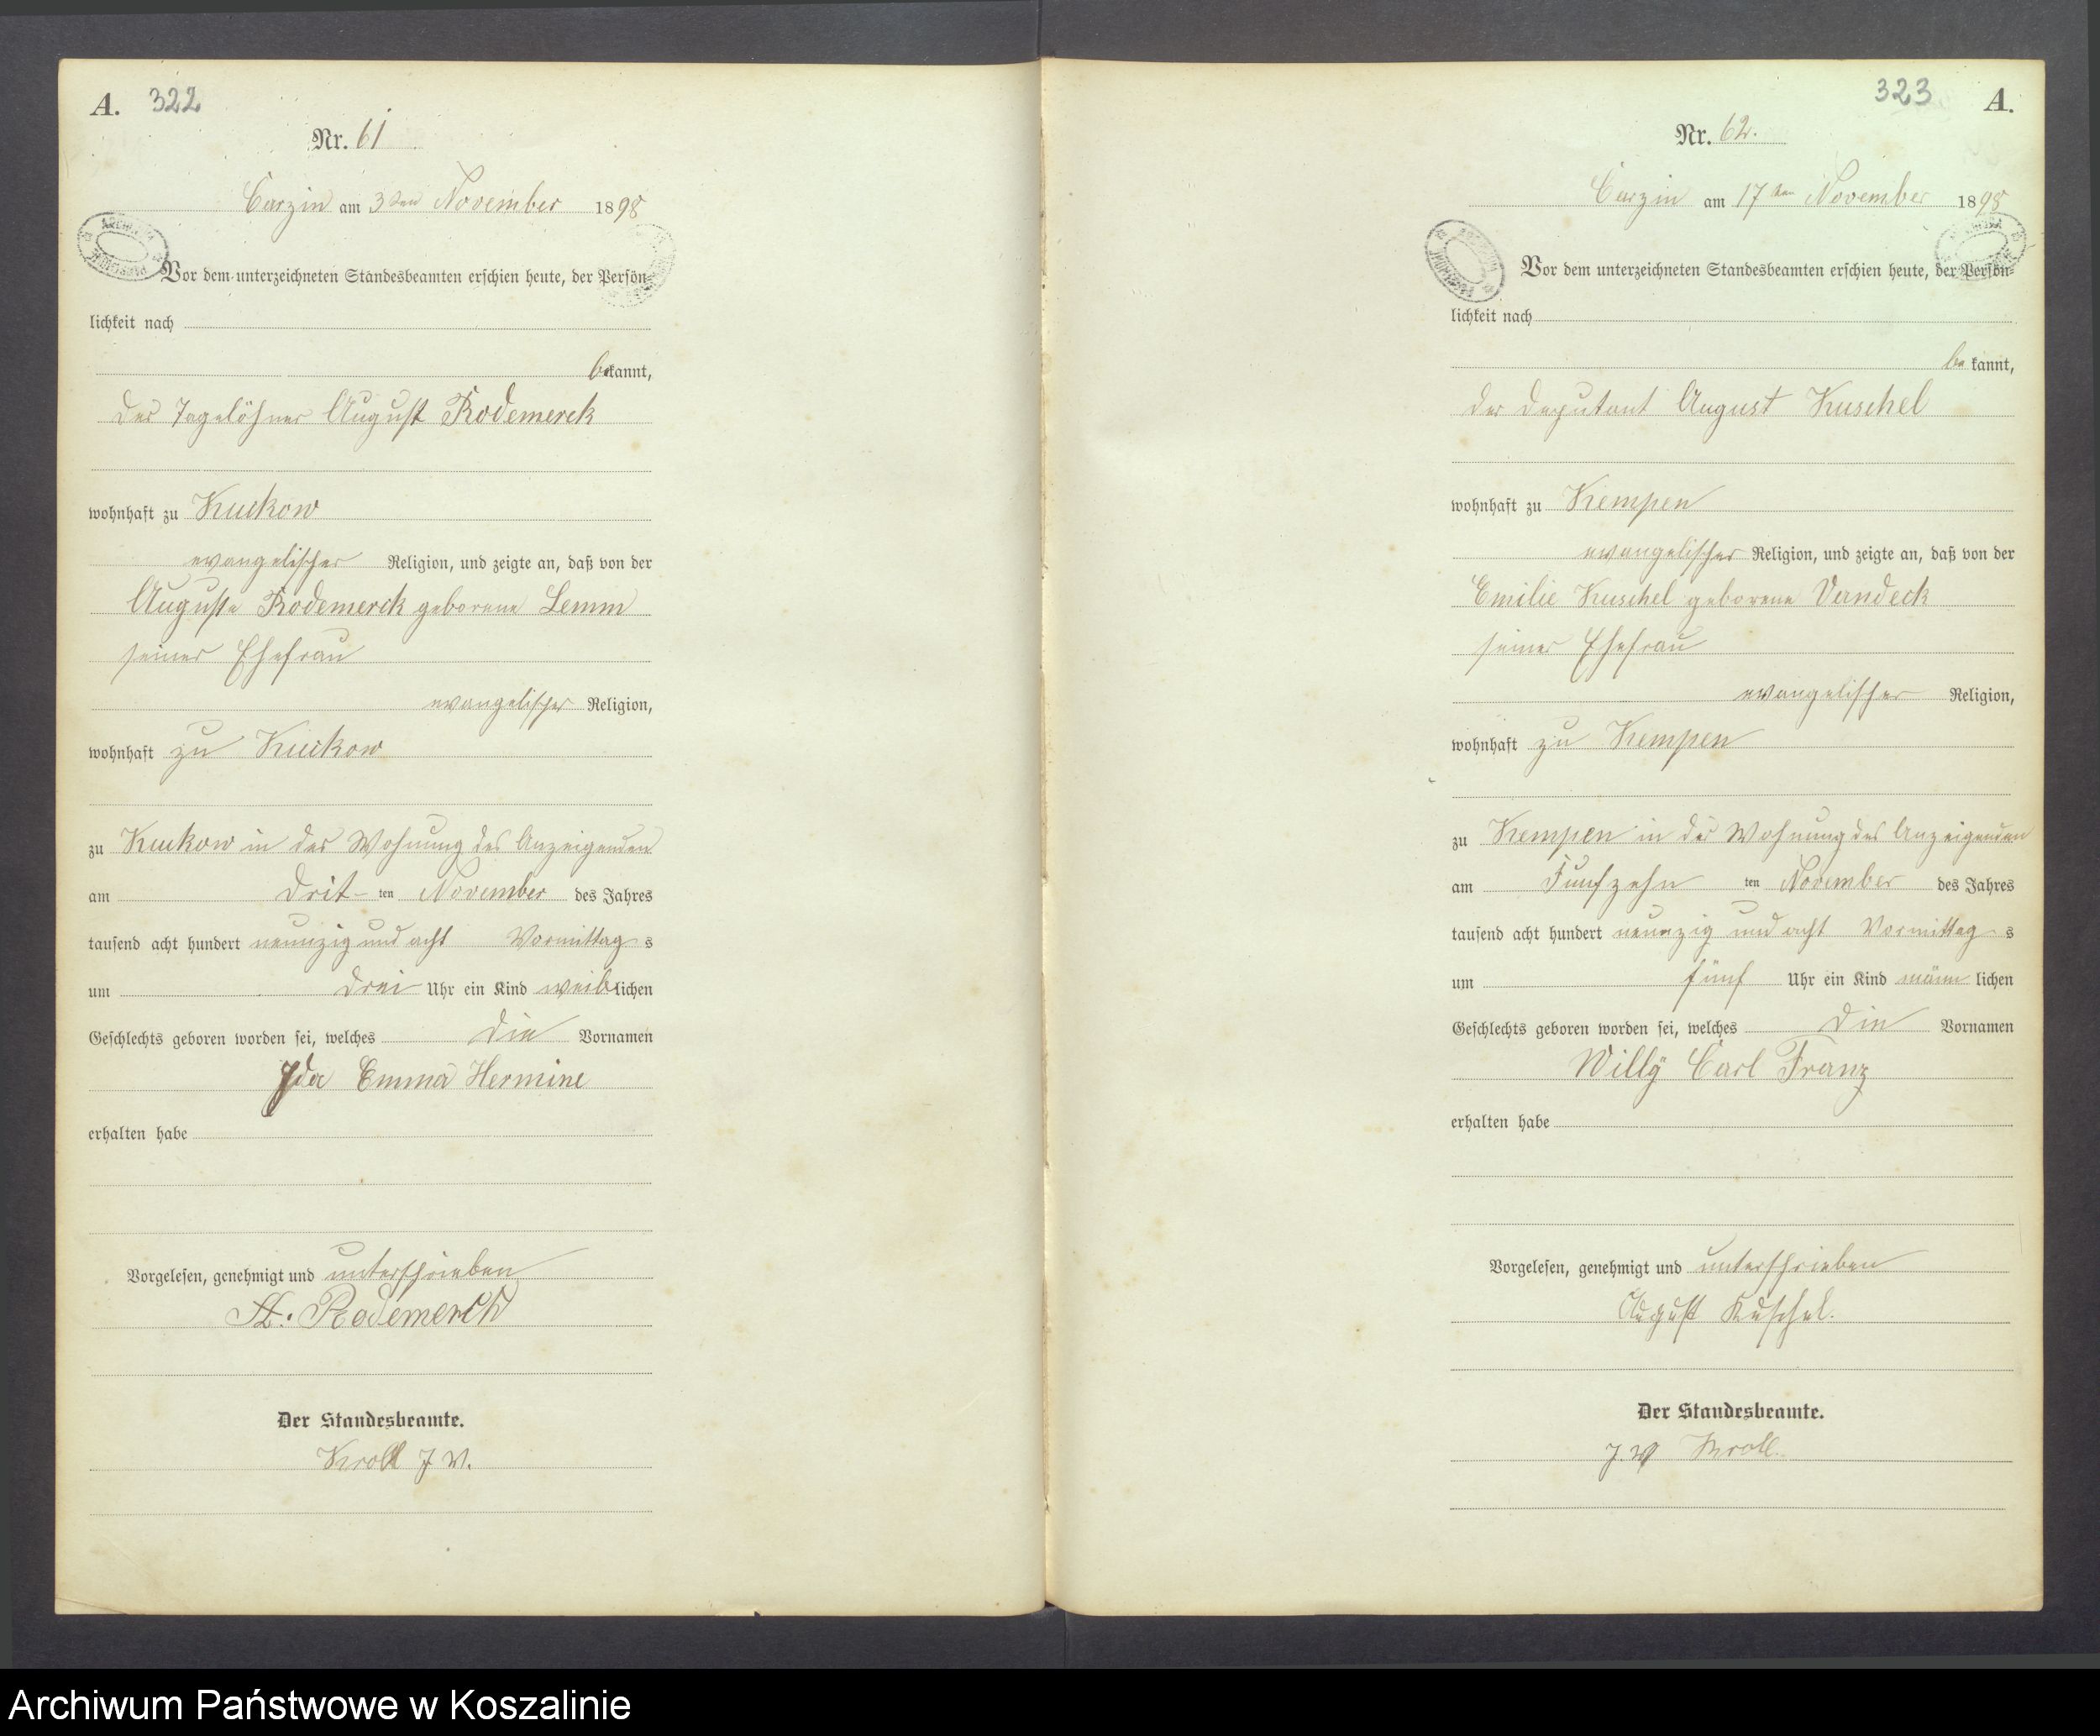 A. 322
Nr. 61
Carzin am 3ten November 1898
Vor dem unterzeichneten Standesbeamten erschien heute, der Persön-
lichkeit nach
bekannt,
der Tagelöhner August Rodemerck
wohnhaft zu Kuckow
evangelischer Religion, und zeigte an, daß von der
Auguste Rodemerck geborene Lemm
seiner Ehefrau
evangelischer Religion,
wohnhaft zu Kuckow
zu Kuckow in der Wohnung des Anzeigenden
am Drit-ten November des Jahres
tausend acht hundert neunzig und acht Vormittags
um drei Uhr ein Kind weiblichen
Geschlechts geboren worden sei, welches die Vornamen
Ida Emma Hermine
erhalten habe
Vorgelesen, genehmigt und unterschrieben
A. Rodemerck
Der Standesbeamte.
Kroll J. V.
323 A.
Nr. 62.
Carzin am 17ten November 1898
Vor dem unterzeichneten Standesbeamten erschien heute, der Persön-
lichkeit nach
bekannt,
der Deputant August Kuschel
wohnhaft zu Kempen
evangelischer Religion, und zeigte an, daß von der
Emilie Kuschel geborene Vandeck
seiner Ehefrau
evangelischer Religion,
wohnhaft zu Kempen
zu Kempen in der Wohnung des Anzeigenden
am Funfzehn ten November des Jahres
tausend acht hundert neunzig und acht Vormittags
um fünf Uhr ein Kind männlichen
Geschlechts geboren worden sei, welches die Vornamen
Willy Carl Franz
erhalten habe
Vorgelesen, genehmigt und unterschrieben
August Kuschel.
Der Standesbeamte.
J. V. Kroll.
Archiwum Państwowe w Koszalinie